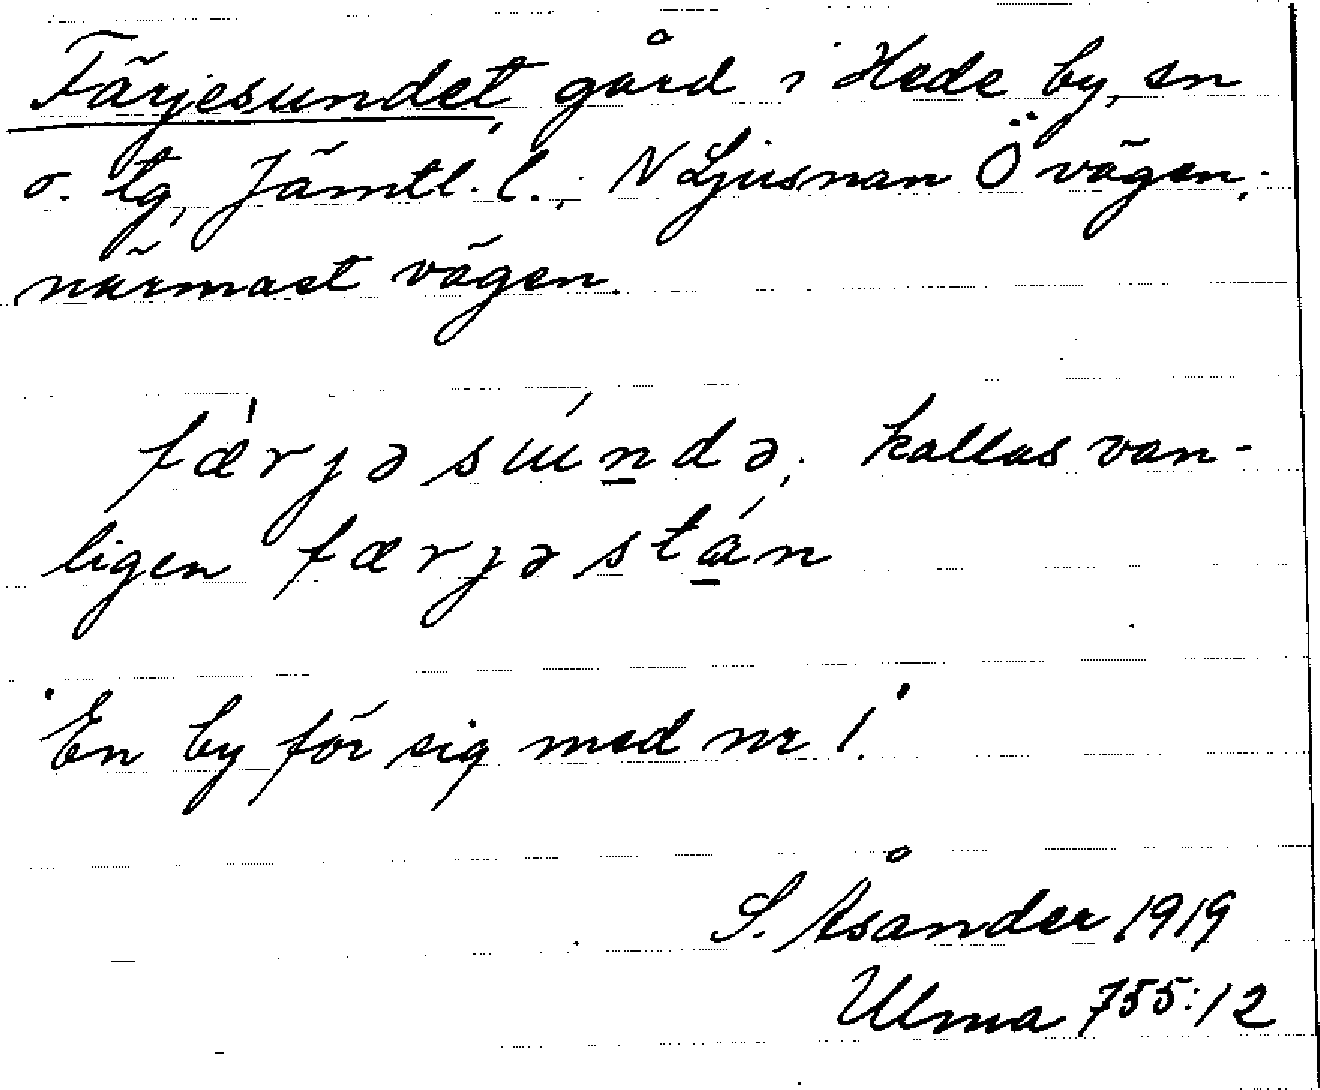 Färjesundet, gård i Hede by, sn
o. tg, Jämtl. l.; N Ljusnan Ö vägen;
närmast vägen.
fæ̀rjəsúndə; kallas van-
ligen færjəstán
"En by för sig med nr 1."
S. Åsander 1919
Ulma 755:12